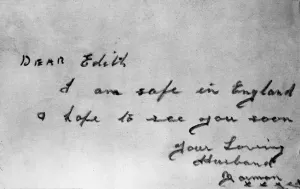 DEAR Edith
I am safe in England
& hope to see you soon
Your Loving
Husband
Norman
x x x x x